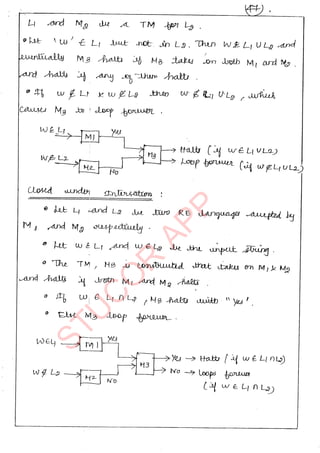 L1 and M2 be a TM for L2.
• Let 'w' ∈ L1 but not in L2. Then w ∈ L1 ∪ L2 and
eventually M3 halts if M3 takes on both M1 and M2.
and halts if any of them halts.
• If w ∉ L1 & w ∉ L2 then w ∉ L1 ∪ L2, which
causes M3 to loop forever.
w ∈ L1 → M1 Yes
M3 → Halts (if w ∈ L1 ∪ L2)
→ Loop forever (if w ∉ L1 ∪ L2)
w ∉ L2 → M2 No
Closed under Intersection :
• Let L1 and L2 be two RE languages accepted by
M1, and M2 respectively.
• Let w ∈ L1, and w ∈ L2 be the input string.
• The TM, M3 is constructed that takes on M1 & M2
and halts if both M1 and M2 halts.
• If w ∈ L1 ∩ L2, M3 halts with "yes".
• Else M3 loop forever.
w ∈ L1 → M1 Yes
M3 → Yes → Halts (if w ∈ L1 ∩ L2)
→ No → Loops forever
(if w ∈ L1 ∩ L2)
w ∉ L2 → M2 No
STUCOR APP